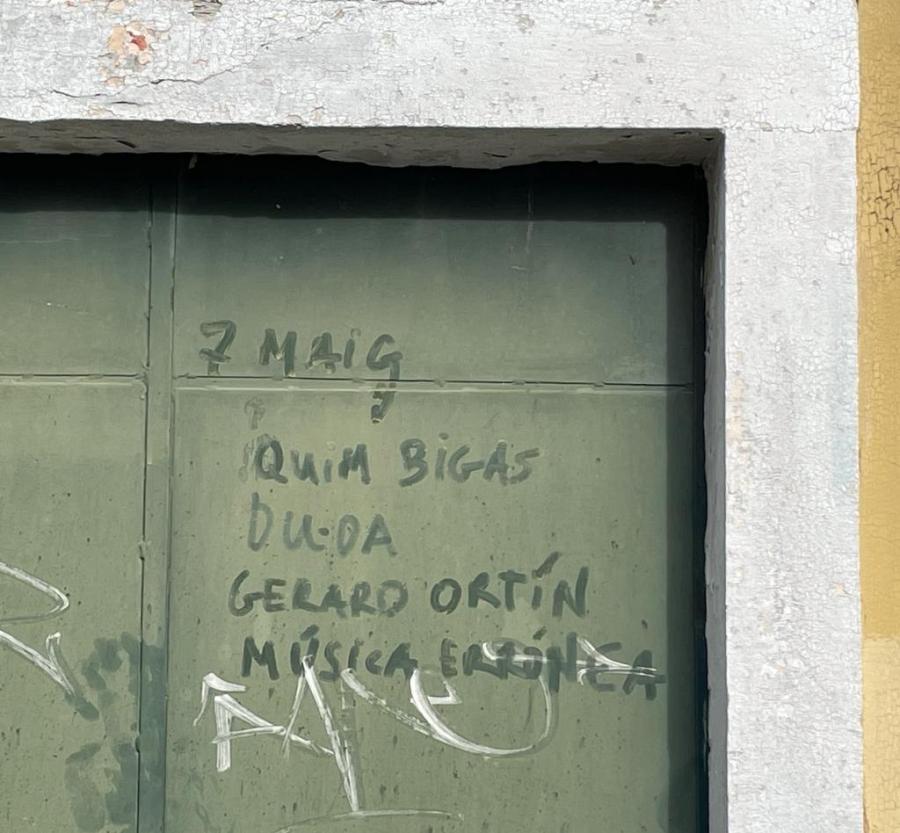 7 MAIG
QUIM BIGAS
DU·DA
GERARD ORTÍN
MÚSICA ERRÓNEA